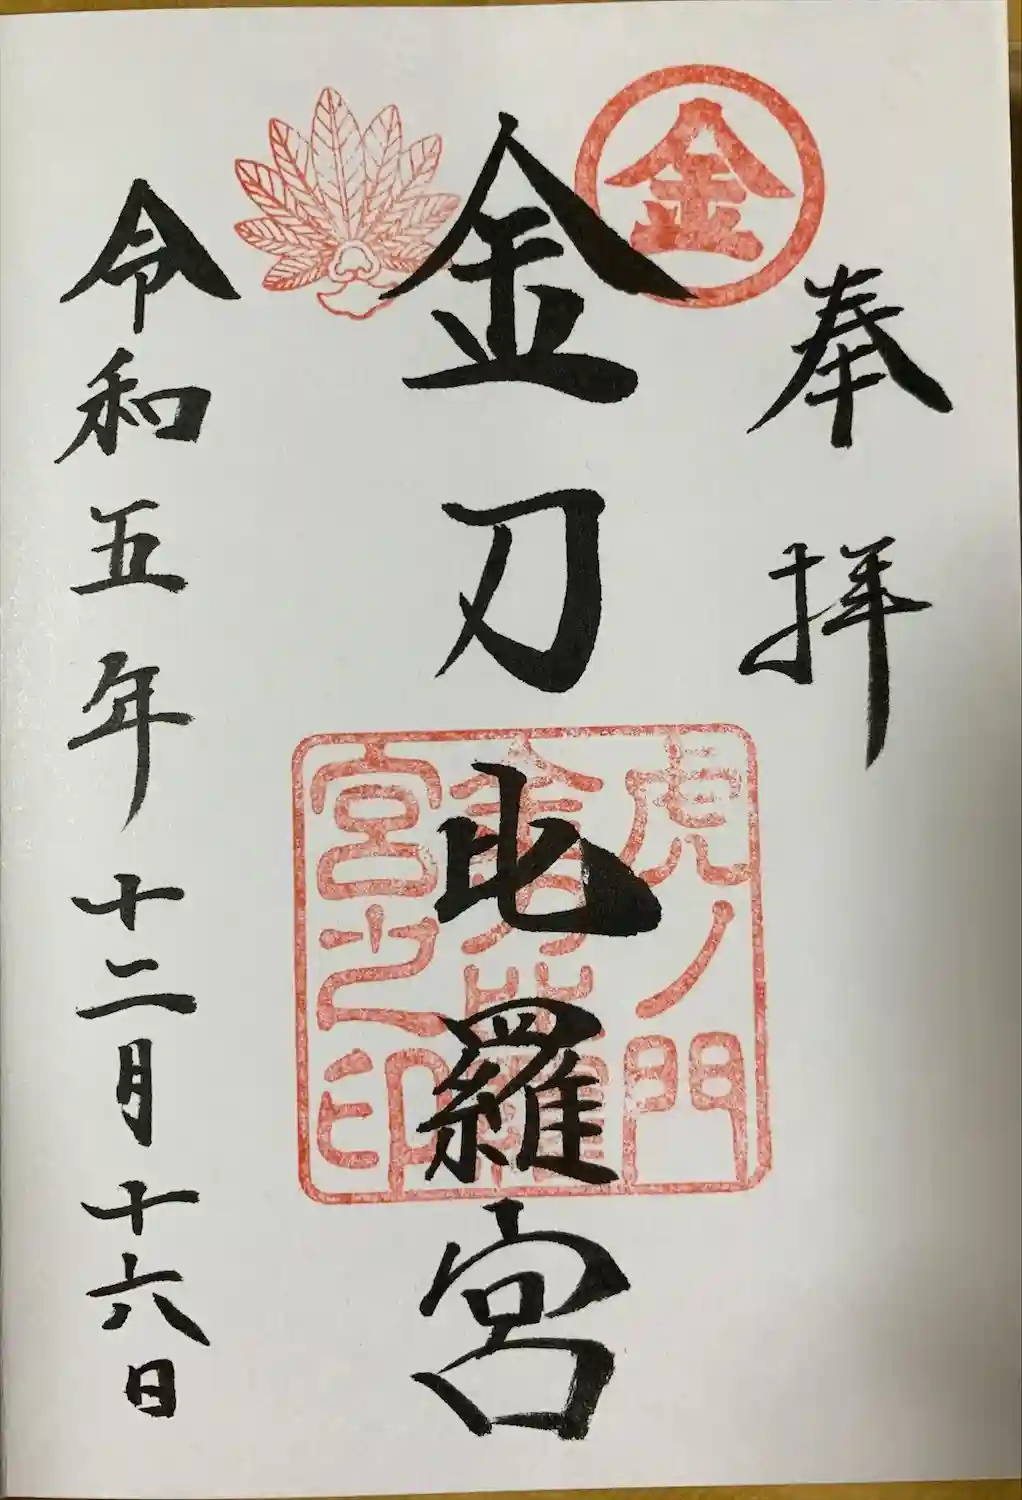 奉拝
金
金刀比羅宮
虎ノ門
金刀比羅
宮之印
令和五年十二月十六日